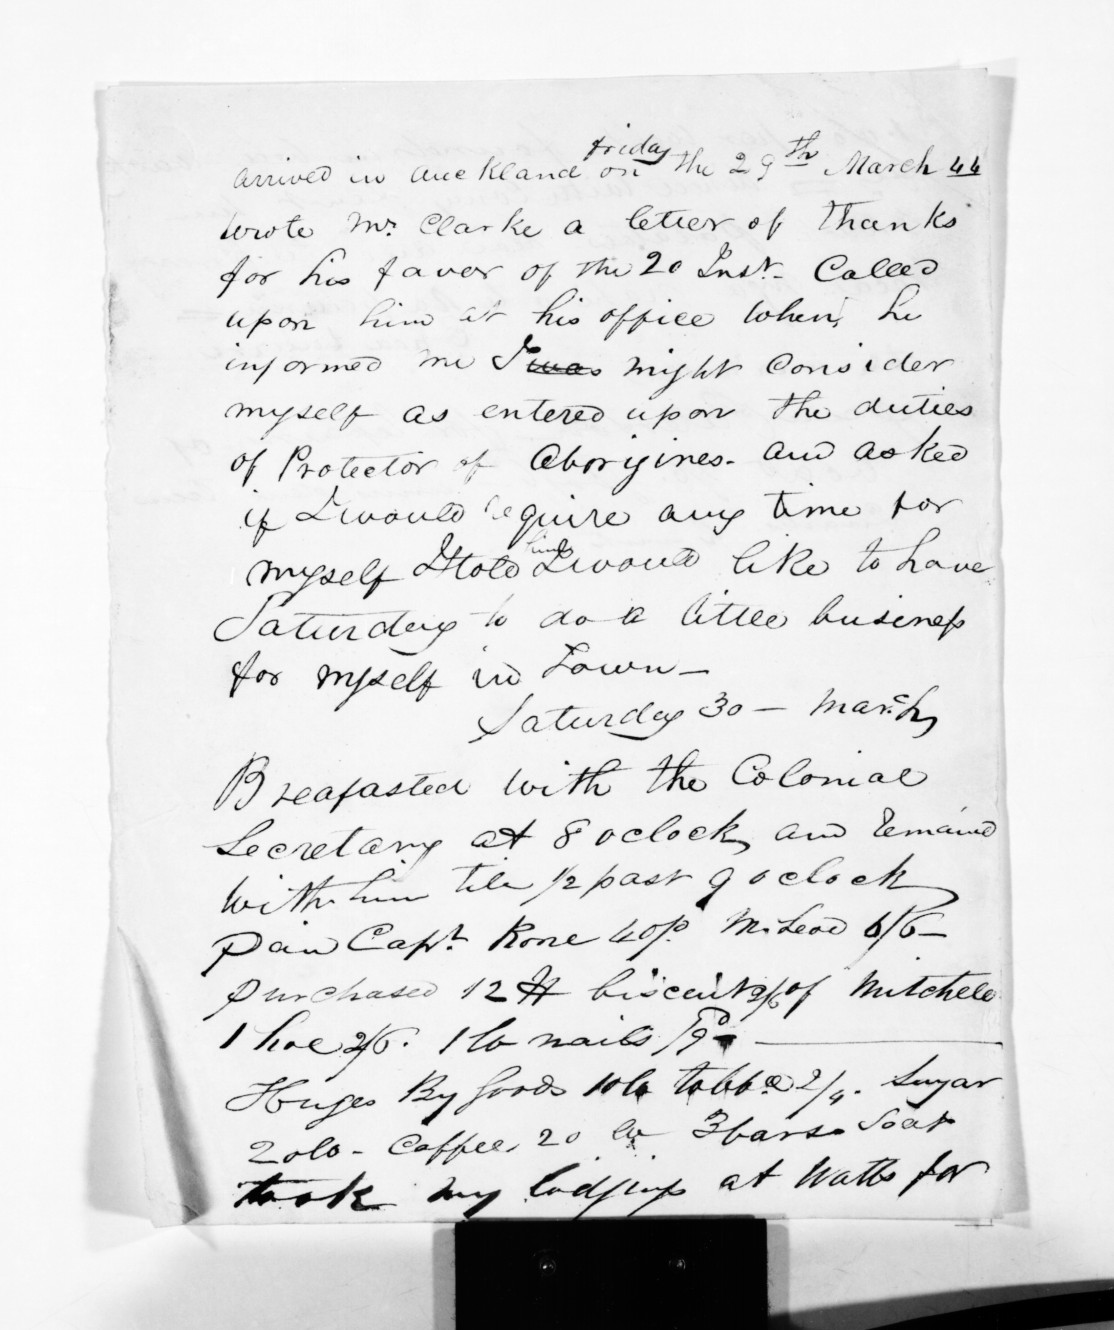 arrived in Auckland on Friday the 29th March 44
wrote Mr Clarke a letter of thanks
for his favor of the 20 Inst. Called
upon him at his office when, he
informed me I was might consider
myself as entered upon the duties
of Protector of Aborigines. and asked
if I would require any time for
myself I told him I would like to have
Saturday to do a little business
for myself in Town —
Saturday 30 — March
Breafasted with the Colonial
Secretary at 8 oclock and remaind
with him till 1/2 past 9 oclock
Paid Capt. Rone 40/. McLeod 6/6 —
Purchased 12 lb biscuit 2/6 of Mitchell
1 hoe 2/6. 1 lb nails /9d —
By Goods 10lb tobbo 2/4. Sugar
20lb - Coffee, 20 lb 3 bars Soap
took my lodgings at Watts for